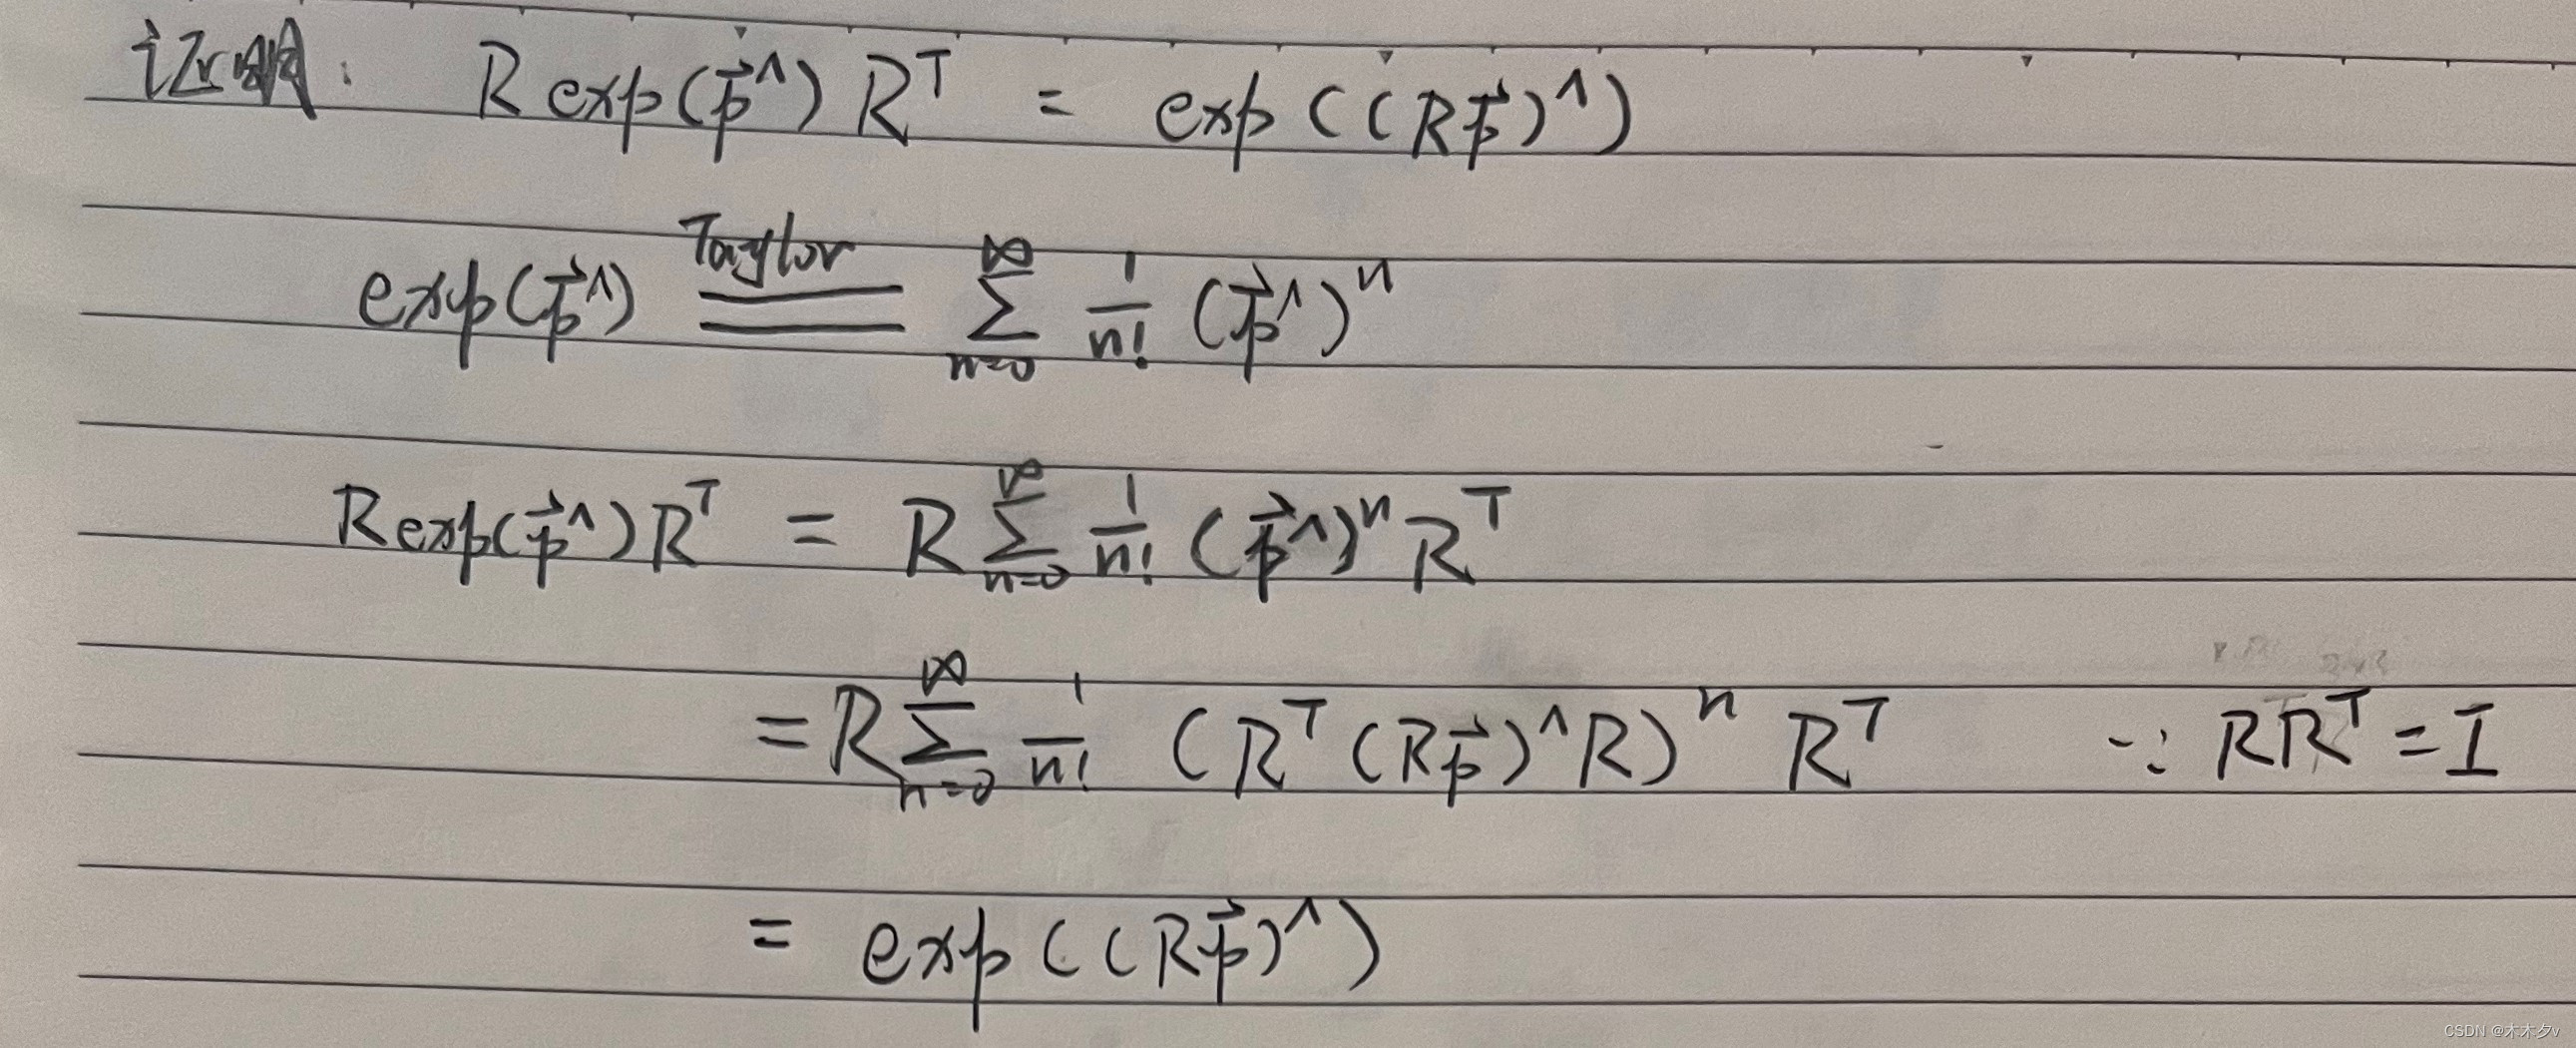 证明: R exp(p⃗^) Rᵀ = exp((Rp⃗)^)
exp(p⃗^) Taylor══ ∑_{n=0}^{∞} 1/n! (p⃗^)ⁿ
R exp(p⃗^) Rᵀ = R ∑_{n=0}^{∞} 1/n! (p⃗^)ⁿ Rᵀ
= R ∑_{n=0}^{∞} 1/n! (Rᵀ(Rp⃗)^R)ⁿ Rᵀ ∵ RRᵀ = I
= exp((Rp⃗)^)
CSDN @木木夕v